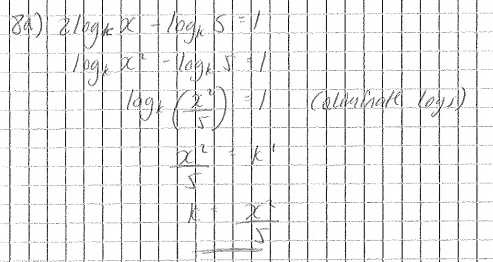 8a) 2log_k x - log_k 5 = 1
log_k x² - log_k 5 = 1
log_k (x²/5) = 1 (eliminate logs)
x²/5 = k¹
k = x²/5